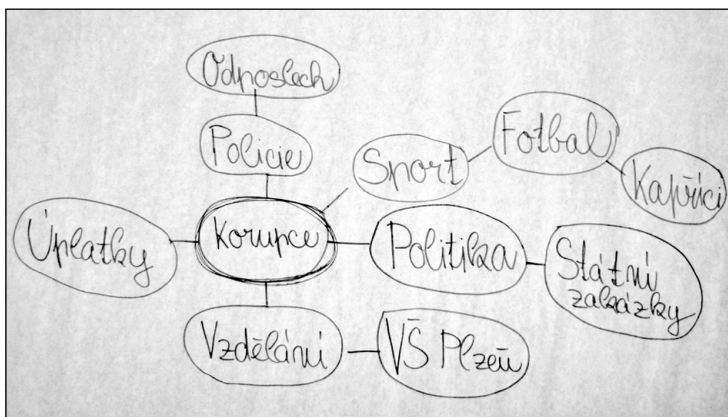 Odposlech
Policie
Sport
Fotbal
Kapříci
Úplatky
Korupce
Politika
Státní
zakázky
Vzdělání
VŠ Plzeň